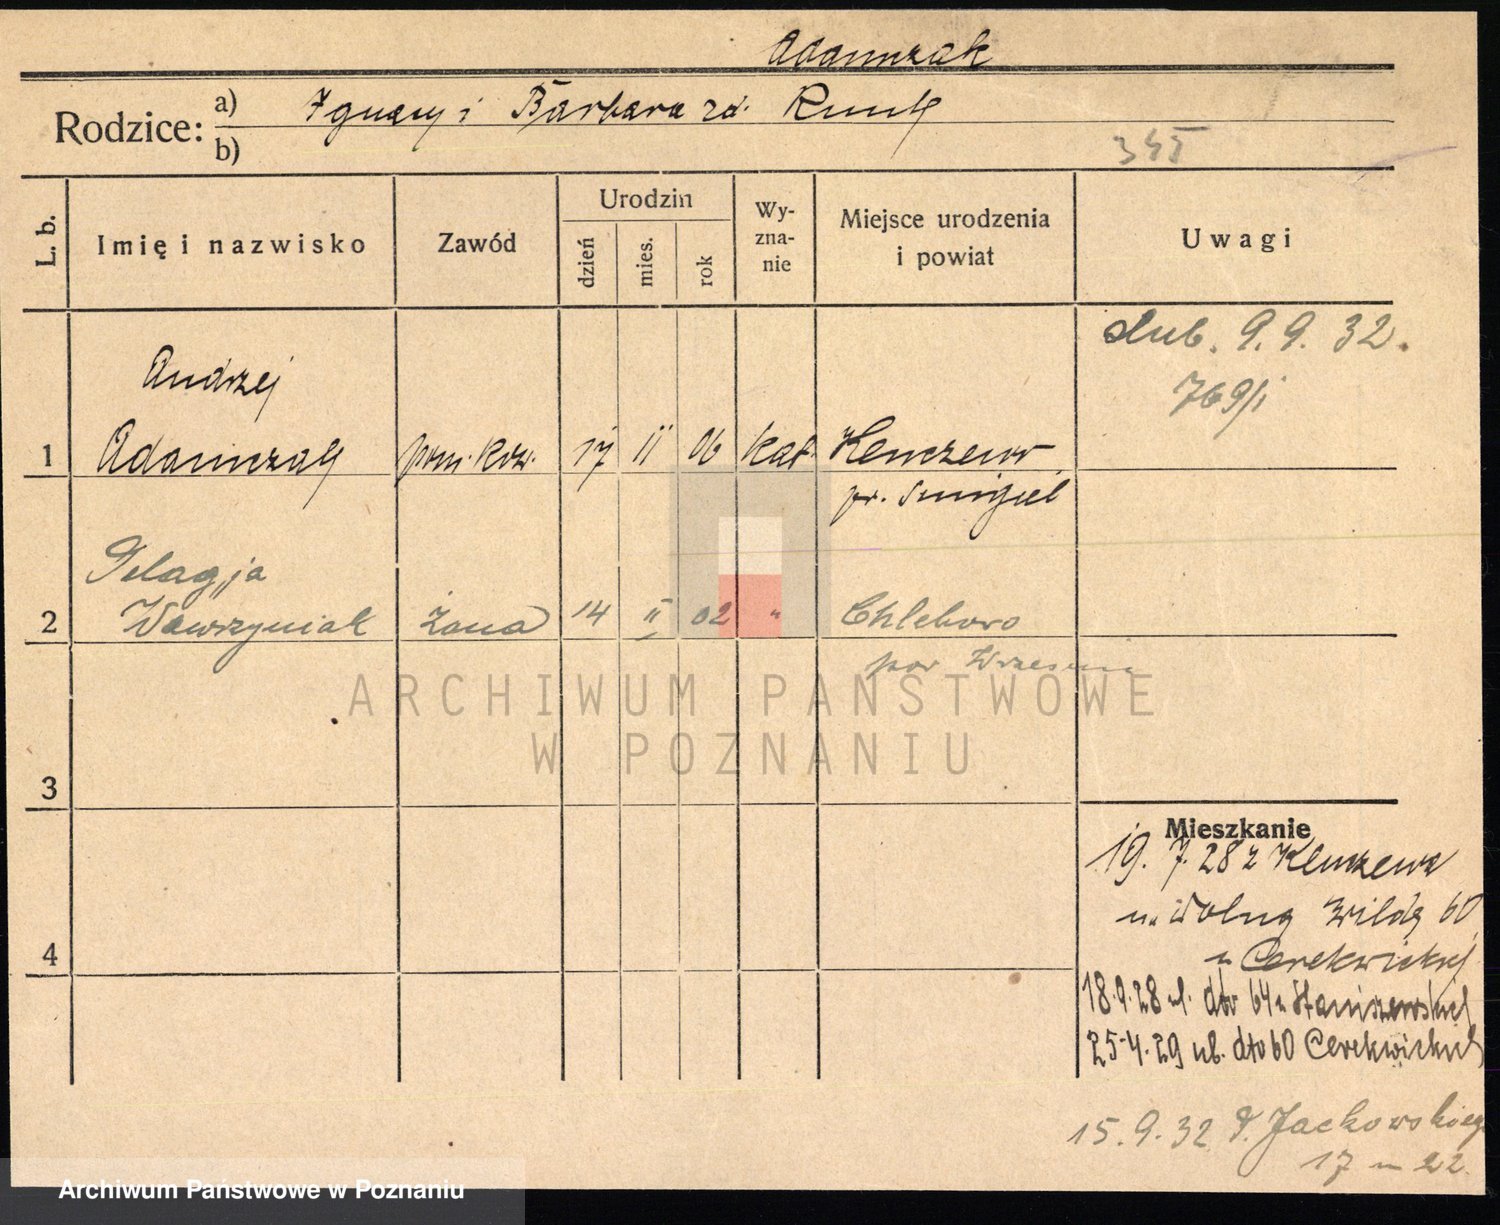 Adamczak
Rodzice: a) Ignacy i Barbara zd.
b)
345
L. b.
Imię i nazwisko
Zawód
Urodzin
dzień
mies.
rok
Wy-
zna-
nie
Miejsce urodzenia
i powiat
Uwagi
ślub. 9.9. 32.
769/i
Andrzej
1 Adamczak pom. 17 II 06 kat.
pr. Śmigiel
Pelagja
2 Wawrzyniak żona 14 II 02 "
pow Wrześnie
3
4
Mieszkanie
19. 7. 28 z
u. Wolny Wilda 60
u Cerekwickiej
18.9.28 ul. dto 64 u Staniszewskiej
25-4.29 ul. dto 60 Cerekwickiej
15.9.32 Jackowskiego
17 m 22.
ARCHIWUM PAŃSTWOWE
W POZNANIU
Archiwum Państwowe w Poznaniu